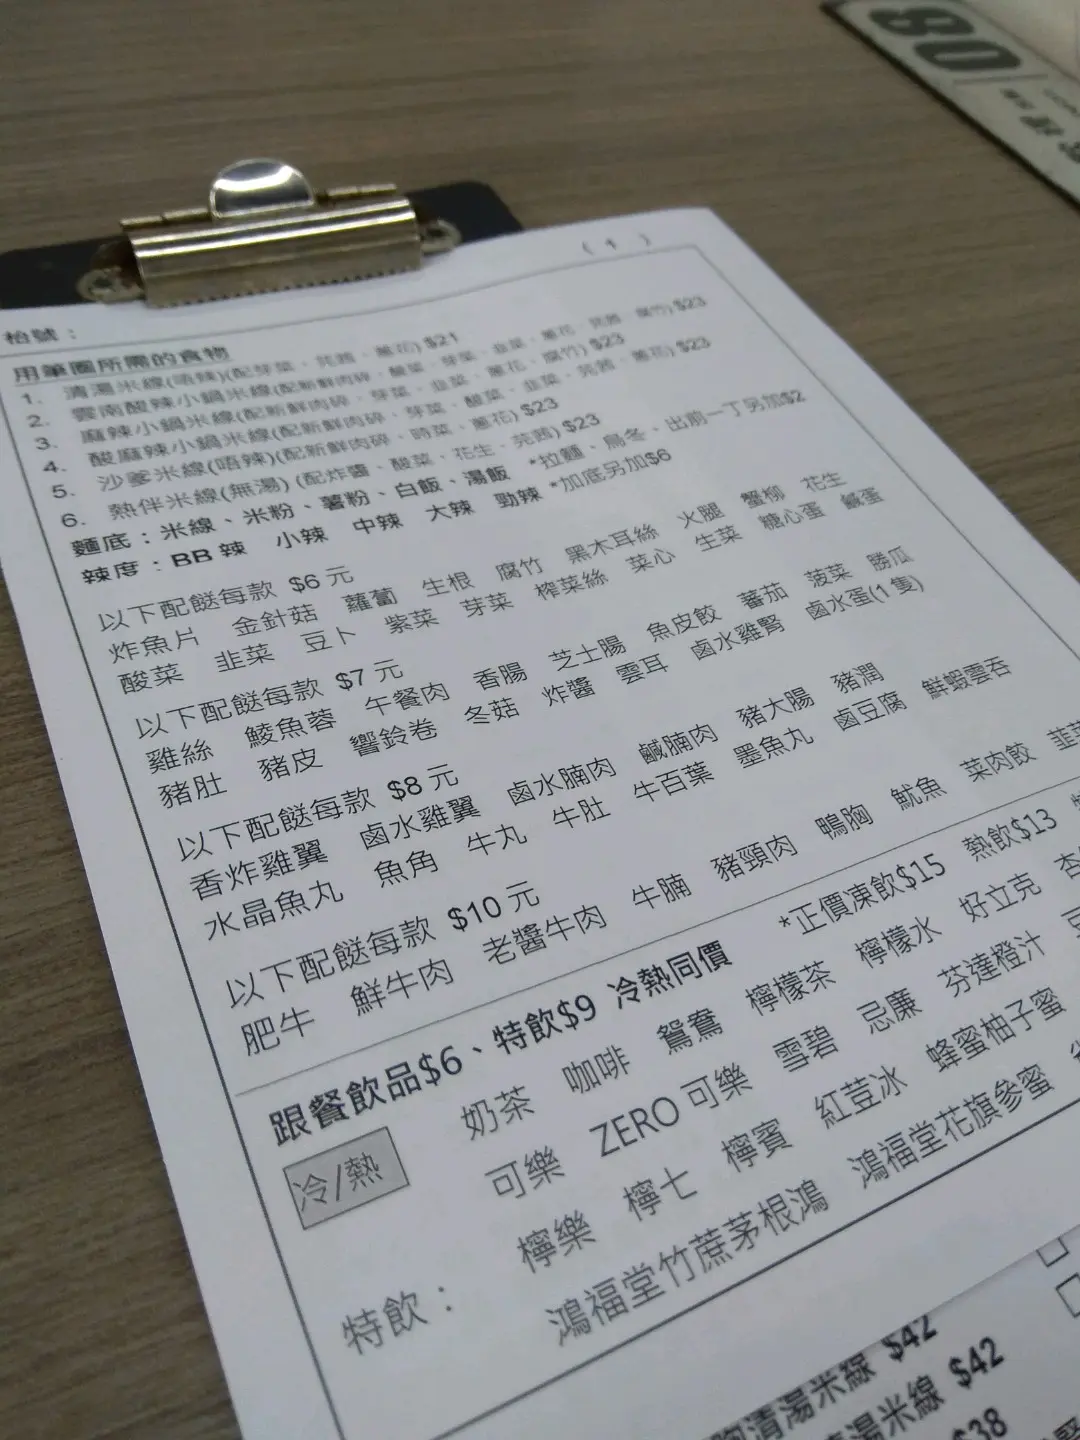 80
( 4 )
枱號：
用筆圈所需的食物
1. 清湯米線(唔辣)(配芽菜、芫茜、蔥花) $21
2. 雲南酸辣小鍋米線(配新鮮肉碎、酸菜、芽菜、韭菜、蔥花、芫茜、腐竹) $23
3. 麻辣小鍋米線(配新鮮肉碎、芽菜、韭菜、蔥花、腐竹) $23
4. 酸麻辣小鍋米線(配新鮮肉碎、芽菜、酸菜、韭菜、芫茜、蔥花) $23
5. 沙爹米線(唔辣)(配新鮮肉碎、時菜、蔥花) $23
6. 熱伴米線(無湯) (配炸醬、酸菜、花生、芫茜) $23
麵底：米線、米粉、薯粉、白飯、湯飯 *拉麵、烏冬、出前一丁另加$2
辣度：BB辣 小辣 中辣 大辣 勁辣 *加底另加$6
以下配餸每款 $6 元
炸魚片 金針菇 蘿蔔 生根 腐竹 黑木耳絲 火腿 蟹柳 花生
酸菜 韭菜 豆卜 紫菜 芽菜 榨菜絲 菜心 生菜 糖心蛋 鹹蛋
以下配餸每款 $7 元
雞絲 鯪魚蓉 午餐肉 香腸 芝士腸 魚皮餃 蕃茄 菠菜 勝瓜
豬肚 豬皮 響鈴卷 冬菇 炸醬 雲耳 鹵水雞腎 鹵水蛋(1隻)
以下配餸每款 $8 元
香炸雞翼 鹵水雞翼 鹵水腩肉 鹹腩肉 豬大腸 豬潤
水晶魚丸 魚角 牛丸 牛肚 牛百葉 墨魚丸 鹵豆腐 鮮蝦雲吞
以下配餸每款 $10 元
肥牛 鮮牛肉 老醬牛肉 牛腩 豬頸肉 鴨胸 魷魚 菜肉餃 韭菜
跟餐飲品$6、特飲$9 冷熱同價 *正價凍飲$15 熱飲$13
冷/熱 奶茶 咖啡 鴛鴦 檸檬茶 檸檬水 好立克 杏
可樂 ZERO可樂 雪碧 忌廉 芬達橙汁
檸樂 檸七 檸賓 紅荳冰 蜂蜜柚子蜜
特飲： 鴻福堂竹蔗茅根鴻 鴻福堂花旗參蜜
清湯米線 $42
湯米線 $42
$38